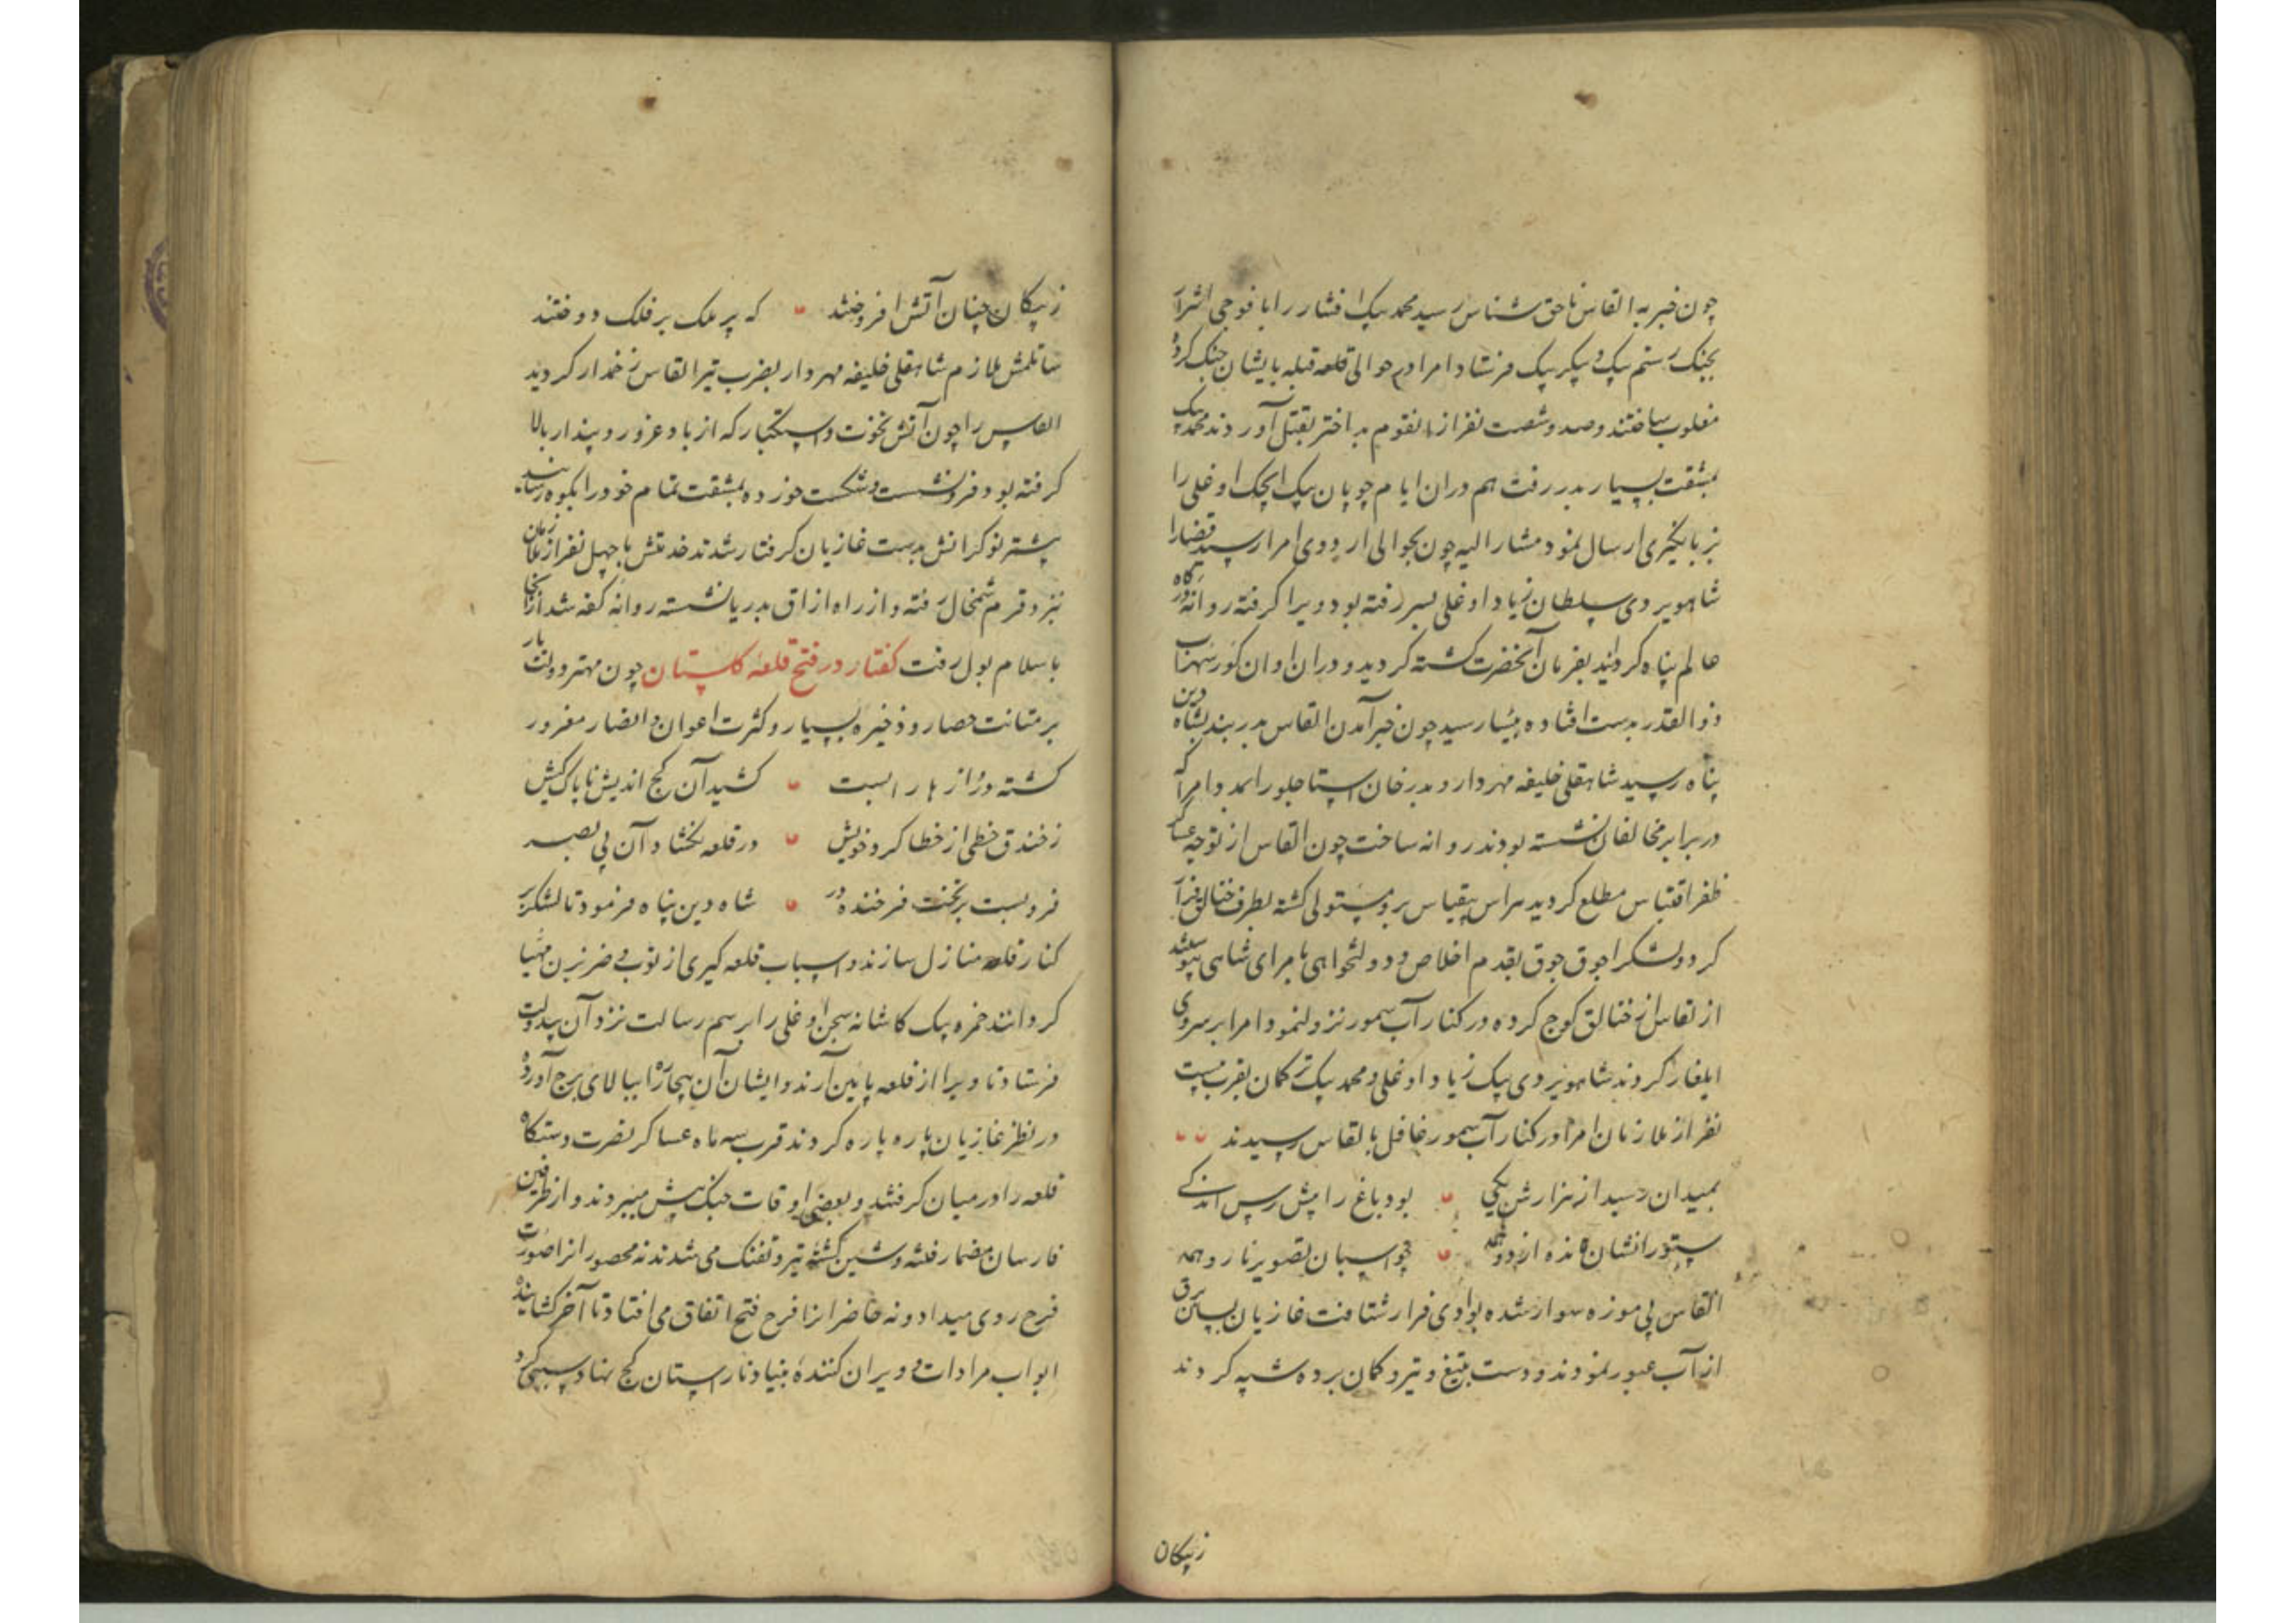 چون خبر به القاس ناحق شناس رسید محمد بیک افشار را با فوجی اشرار
بجنک رستم بیک و پیکر بیک فرستاد امرا در حوالی قلعه قبله بایشان جنک کرده
مغلوب ساختند و صد و شصت نفر از انقوم بد اختر بقتل آوردند محمد بیک
بمشقت بسیار بدر رفت هم دران ایام چوپان بیک ایچک اوغلی را
بزبانگیری ارسال نمود مشار الیه چون بحوالی اردوی امرا رسید قضارا
شاهویردی سلطان زیاد اوغلی بسر رفته بود ویرا کرفته روانه درگاه
عالم پناه کردانید بفرمان آنحضرت کشته کردید و دران اوان کور سهراب
ذو القدر بدست افتاده بیسار سید چون خبر آمدن القاس بدربند بشاه دین
پناه رسید شاهقلی خلیفه مهردار و بدرخان استاجلو را بمدد امرا که
در برابر مخالفان نشسته بودند روانه ساخت چون القاس از توجه عساکر
ظفر اقتباس مطلع کردید هراس بیقیاس برو مستولی کشته بطرف ختالق فرار
کرد و لشکر اجوق جوق بقدم اخلاص و دولتخواهی بامرای شاهی پیوستند
القاس از ختالق کوچ کرده در کنار آب سمور نزول نمود امرا بر سر وی
ایلغار کردند شاهویردی بیک زیاد اوغلی و محمد بیک ترکمان بقرب بیست
نفر از ملازمان امرا در کنار آب سمور غافل بالقاس رسیدند
بمیدان رسید از هزارش یکی بود باغ را پیش رس اندکی
ستور انشان مانده از دو همه چو اسبان تصویر نا رو همه
القاس بی موزه سوار شده بوادی فرار شتافت غازیان بسان برق
از آب عبور نمودند و دست بتیغ و تیر و کمان برده شیبه کردند
زپیکان
زپیکان چنان آتش افروختند که پر ملک بر فلک دوختند
ساتلمش ملازم شاهقلی خلیفه مهردار بضرب تیر القاس زخمدار کردید
القاس را چون آتش نخوت و استکبار که از باد غرور و پندار بالا
کرفته بود فرو نشست و شکست خورده بمشقت تمام خود را بکوه رسانید
بیشتر نوکرانش بدست غازیان کرفتار شدند خدمتش با چهل نفر از ملازمان
نزد قرم شمخال رفته و از راه ازاق بدریا نشسته روانه کفه شد از آنجا
باسلامبول رفت کفتار در فتح قلعه کلستان چون مهتر دولتیار
بر متانت حصار و ذخیره بسیار و کثرت اعوان و انصار مغرور
کشته دروازها را ببست کشید آن کج اندیش ناپاک کیش
زخندق خطی از خطا کرد خویش در قلعه نکشاد آن بی بصر
فرو بست بر بخت فرخنده در شاه دین پناه فرمود تا لشکر بر
کنار قلعه منازل سازند و اسباب قلعه کیری از توب و ضربزن مهیا
کردانند حمزه بیک کاشانه سجن اوغلی را برسم رسالت نزد آن بیدولت
فرستاد تا ویرا از قلعه پایین آرند و ایشان آن بیچاره را ببالای برج آورده
در نظر غازیان پاره پاره کردند قرب سه ماه عساکر نصرت دستکاه
قلعه را در میان کرفتند و بعضی اوقات جنک پیش میبردند و از طرفین
فارسان مضمار فتنه و شین کشته تیر و تفنک می شدند نه محصور انرا صورت
فرح روی میداد و نه حاضرانرا فرح فتح اتفاق می افتاد تا آخر کشاینده
ابواب مرادات و ویران کننده بنیاد ناراستان کج نهاد